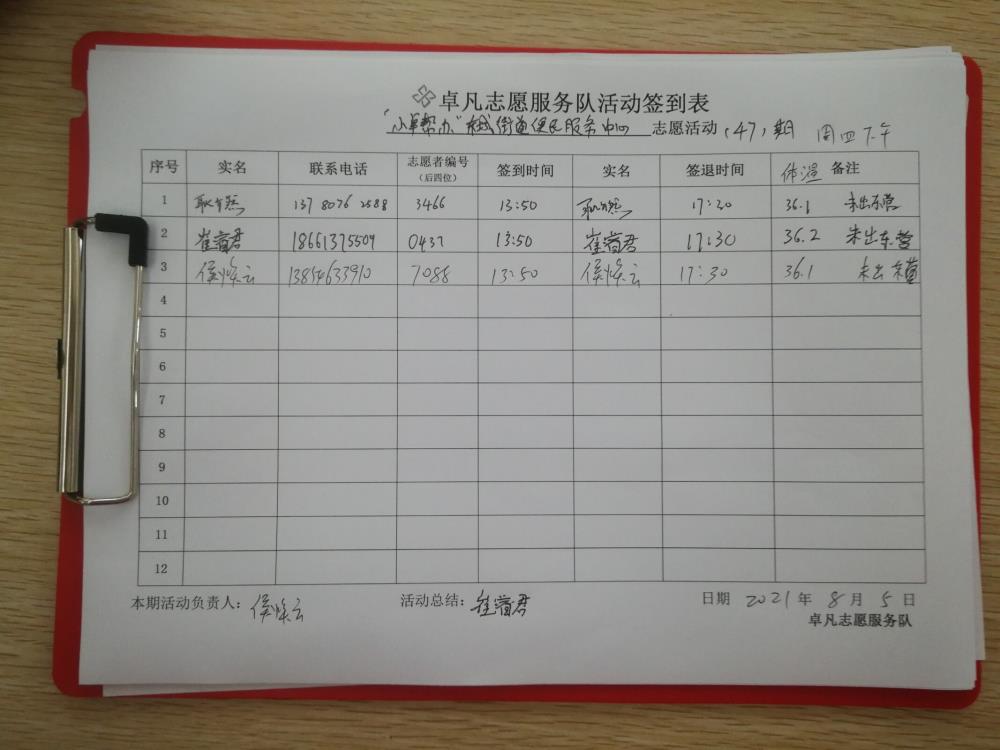 卓凡志愿服务队活动签到表
街道便民服务中心 志愿活动（47）期 周四下午
序号 实名 联系电话 志愿者编号（后四位） 签到时间 实名 签退时间 体温 备注
1 137 8076 2588 3466 13:50 17:30 36.1 未出东营
2 崔富君 18661375509 0437 13:50 崔富君 17:30 36.2 未出东营
3 侯焕云 13854633910 7088 13:50 侯焕云 17:30 36.1 未出东营
4
5
6
7
8
9
10
11
12
本期活动负责人：侯焕云 活动总结：崔富君 日期 2021年8月5日
卓凡志愿服务队